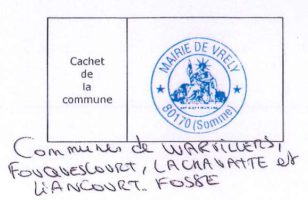 Cachet
de
la
commune
MAIRIE DE VRELY
80170 (Somme)
Communes de WARVILLERS,
FOUQUESCOURT, LACHAVATTE et
LIANCOURT. FOSSE